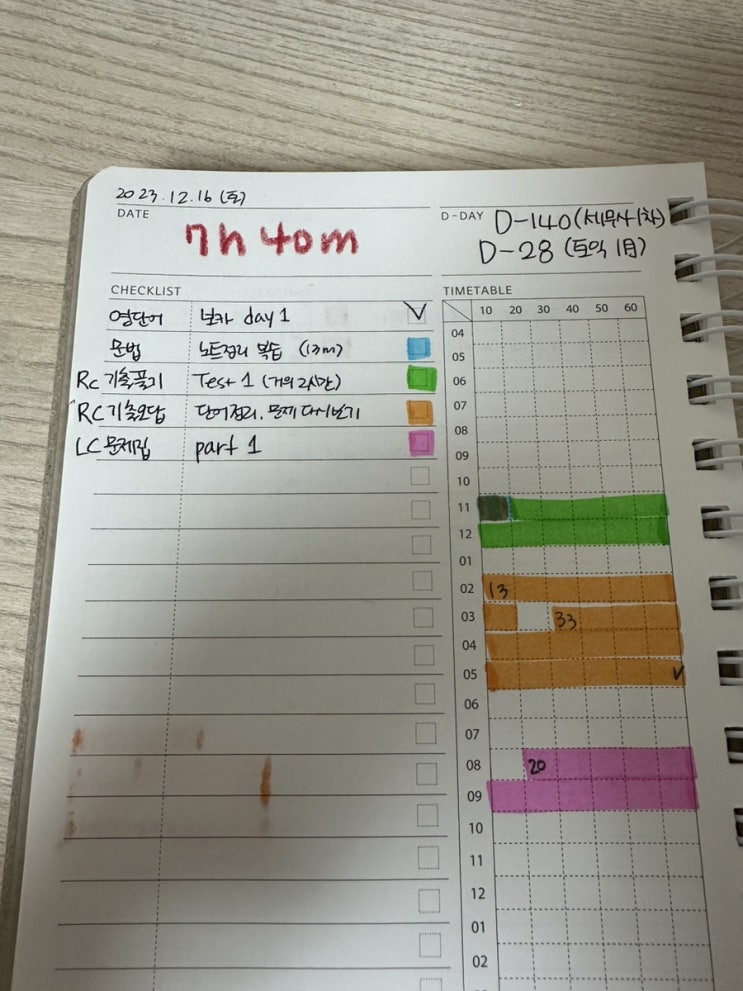 2023.12.16 (토)
DATE
7h 40m
D-DAY D-140 (세무사 1차)
D-28 (토익 1月)
CHECKLIST
영단어 보카 day 1
문법 노트정리 복습 (13m)
RC 기출풀기 Test 1 (거의 2시간)
RC 기출오답 단어정리, 문제 다시보기
LC 문제집 part 1
TIMETABLE
10 20 30 40 50 60
04
05
06
07
08
09
10
11
12
01
02 13
03 33
04
05
06
07
08 20
09
10
11
12
01
02